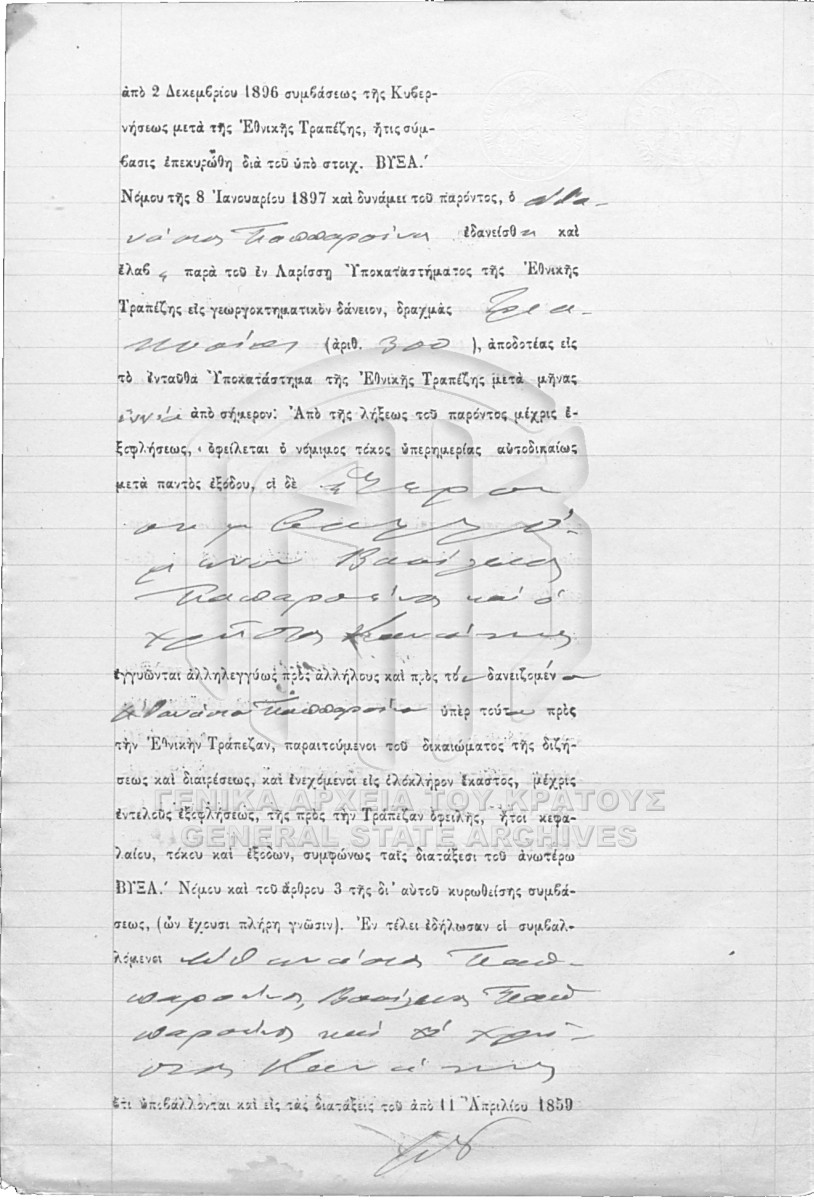 ἀπὸ 2 Δεκεμβρίου 1896 συμβάσεως τῆς Κυβερ-
νήσεως μετὰ τῆς Ἐθνικῆς Τραπέζης, ἥτις σύμ-
βασις ἐπεκυρώθη διὰ τοῦ ὑπὸ στοιχ. ΒΥΞΑ.΄
Νόμου τῆς 8 Ἰανουαρίου 1897 καὶ δυνάμει τοῦ παρόντος, ὁ Ἀθα-
νάσιος ἐδανείσθη καὶ
ἔλαβε παρὰ τοῦ ἐν Λαρίσσῃ Ὑποκαταστήματος τῆς Ἐθνικῆς
Τραπέζης εἰς γεωργοκτηματικὸν δάνειον, δραχμὰς τρια-
κοσίας (ἀριθ. 300 ), ἀποδοτέας εἰς
τὸ ἐνταῦθα Ὑποκατάστημα τῆς Ἐθνικῆς Τραπέζης μετὰ μῆνας
ἐννέα ἀπὸ σήμερον. Ἀπὸ τῆς λήξεως τοῦ παρόντος μέχρις ἐ-
ξοφλήσεως, ὀφείλεται ὁ νόμιμος τόκος ὑπερημερίας αὐτοδικαίως
μετὰ παντὸς ἐξόδου, οἱ δὲ ἕτεροι
συμβαλλό-
μενοι Βασίλειος
καὶ ὁ
Χρῆστος
ἐγγυῶνται ἀλληλεγγύως πρὸς ἀλλήλους καὶ πρὸς τὸν δανειζόμενον
Ἀθανάσιον ὑπὲρ τούτου πρὸς
τὴν Ἐθνικὴν Τράπεζαν, παραιτούμενοι τοῦ δικαιώματος τῆς διζή-
σεως καὶ διαιρέσεως, καὶ ἐνεχόμενοι εἰς ὁλόκληρον ἕκαστος, μέχρις
ΓΕΝΙΚΑ ΑΡΧΕΙΑ ΤΟΥ ΚΡΑΤΟΥΣ
ἐντελοῦς ἐξοφλήσεως, τῆς πρὸς τὴν Τράπεζαν ὀφειλῆς, ἤτοι κεφα-
GENERAL STATE ARCHIVES
λαίου, τόκου καὶ ἐξόδων, συμφώνως ταῖς διατάξεσι τοῦ ἀνωτέρω
ΒΥΞΑ.΄ Νόμου καὶ τοῦ ἄρθρου 3 τῆς δι' αὐτοῦ κυρωθείσης συμβά-
σεως, (ὧν ἔχουσι πλήρη γνῶσιν). Ἐν τέλει ἐδήλωσαν οἱ συμβαλ-
λόμενοι Ἀθανάσιος
Βασίλειος
καὶ ὁ Χρῆ-
στος
ὅτι ὑποβάλλονται καὶ εἰς τὰς διατάξεις τοῦ ἀπὸ 11 Ἀπριλίου 1859